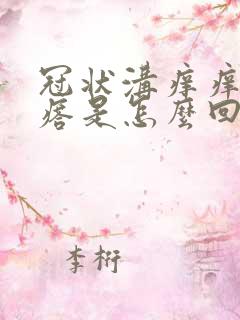 冠状溝痒痒
痞是怎麼回
李桁